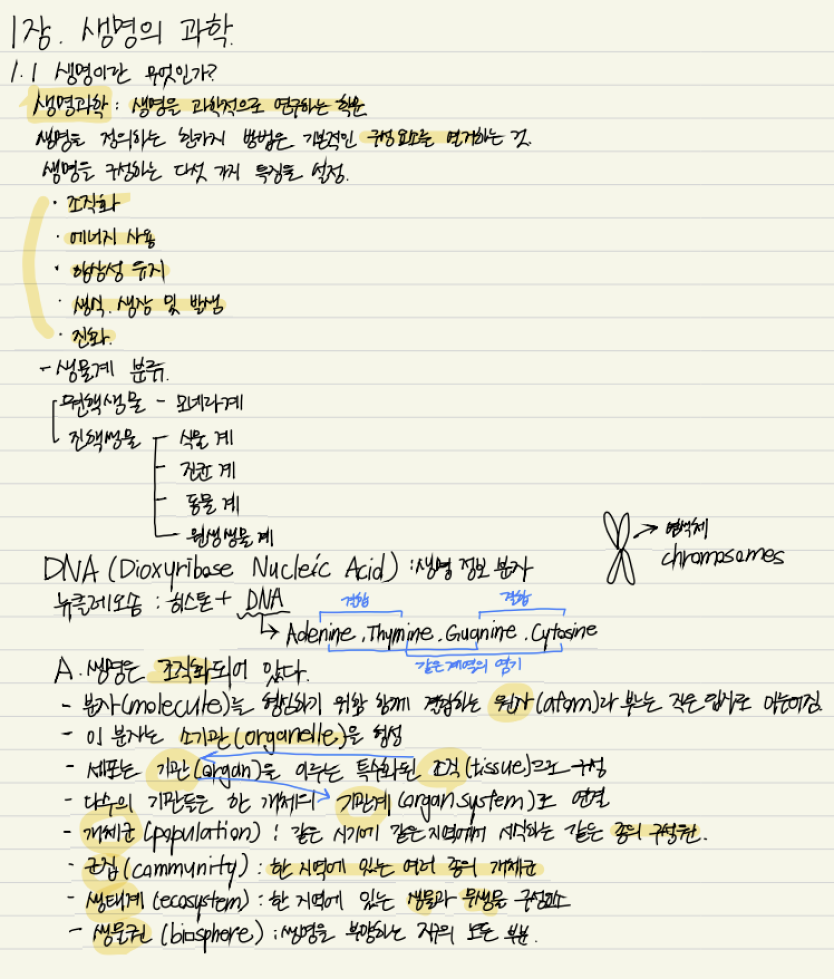 1장. 생명의 과학.
1.1 생명이란 무엇인가?
생명과학 : 생명을 과학적으로 연구하는 학문
생명을 정의하는 한가지 방법은 기본적인 구성요소를 열거하는 것.
생명을 구성하는 다섯 가지 특징을 설정.
· 조직화
· 에너지 사용
· 항상성 유지
· 생식. 생장 및 발생
· 진화.
- 생물계 분류.
원핵생물 - 모네라계
진핵생물 - 식물계
- 진균계
- 동물계
- 원생생물계
염색체
chromosomes
DNA (Dioxyribose Nucleic Acid) : 생명 정보 분자
뉴클레오솜 : 히스톤 + DNA
결합 결합
Adenine, Thymine, Guanine, Cytosine
같은계열의 염기
A. 생명은 조직화되어 있다.
- 분자(molecule)를 형성하기 위해 함께 결합하는 원자(atom)라 부르는 작은 입자로 이루어짐.
- 이 분자는 소기관(organelle)을 형성
- 세포는 기관(organ)을 이루는 특수화된 조직(tissue)으로 구성
- 다수의 기관들은 한 개체의 기관계(organ.system)로 연결
- 개체군(population) : 같은 시기에 같은 지역에서 서식하는 같은 종의 구성원.
- 군집(community) : 한 지역에 있는 여러 종의 개체군
- 생태계(ecosystem) : 한 지역에 있는 생물과 무생물 구성요소
- 생물권(biosphere) : 생명을 부양하는 지구의 모든 부분.